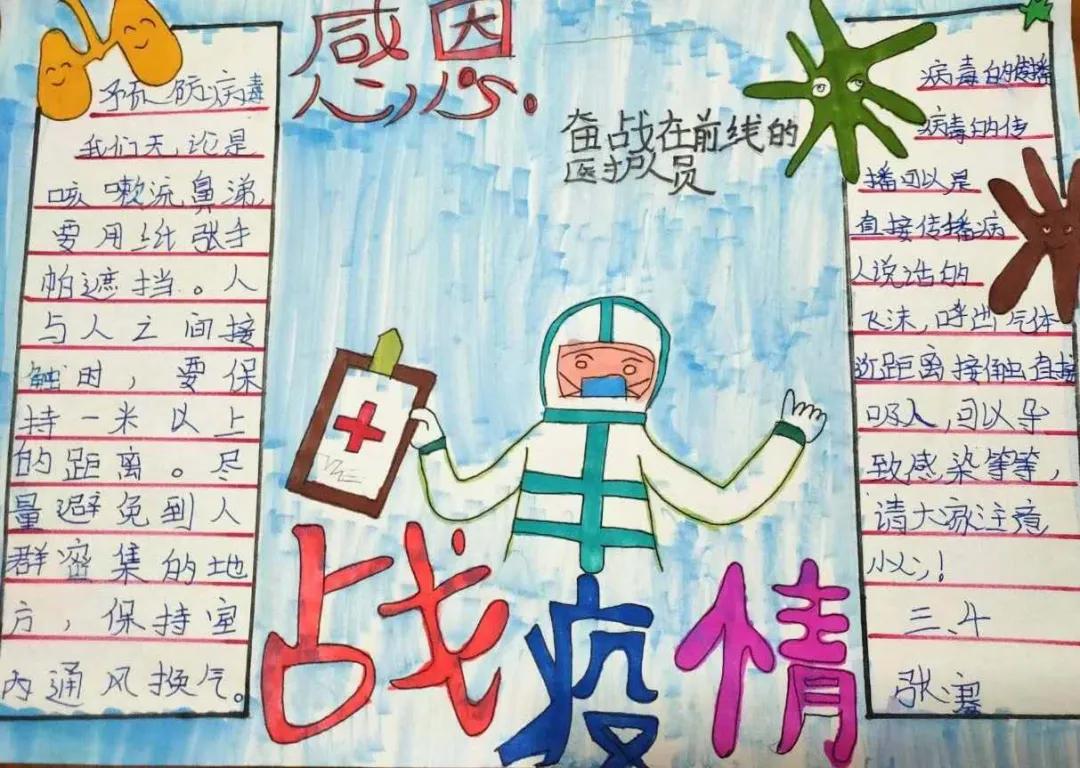 感恩.
奋战在前线的
医护人员
预防病毒
我们无论是
咳嗽流鼻涕,
要用纸张手
帕遮挡。人
与人之间接
触时,要保
持一米以上
的距离。尽
量避免到人
群密集的地
方,保持室
内通风换气。
病毒的传播
病毒的传
播可以是
直接传播病
人说话的
飞沫,呼出气体
近距离接触直接
吸入,可以导
致感染等等,
请大家注意
小心!
三、4
张
战疫情